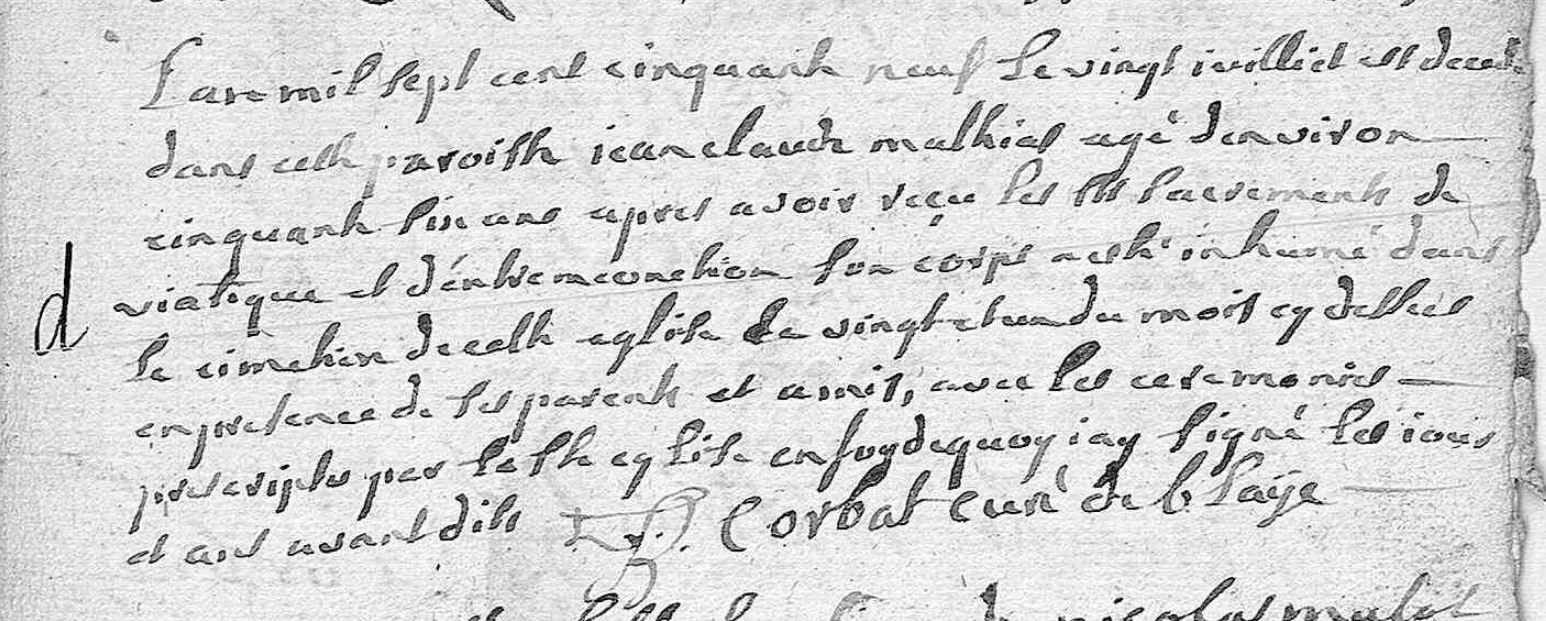 Lan mil sept cent cinquante neuf le vingt iuilliet est decedé
dans cette paroisse iean claude mathieu agé denviron
cinquante six ans apres avoir reçu les sts sacrements de
d viatique et d'entreme onction son corps a esté inhumé dans
le cimetiere de cette eglise le vingt et un du mois cy dessus
en presence de ses parents et amis, avec les ceremonies
prescriptes par la ste eglise en foy de quoy iay signé les iours
et ans avant dits Corbat curé de blaye
nicolas